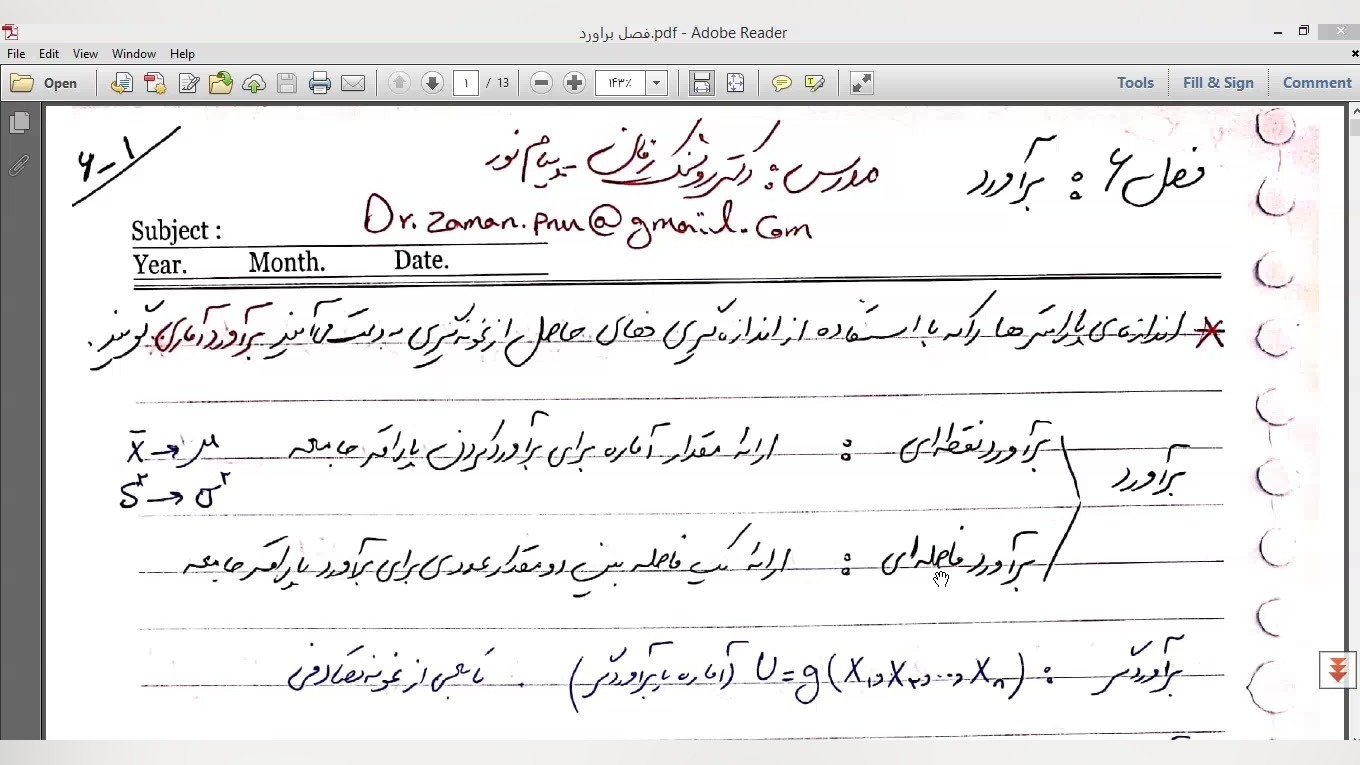 فصل براورد.pdf - Adobe Reader
File Edit View Window Help
Open ۱ / 13 ۱۴۳٪ Tools Fill & Sign Comment
۶-۱
فصل ۶ : برآورد
مدرس : دکتر روشنک زمان - پیام نور
Dr.zaman.pnu@gmail.com
Subject :
Year. Month. Date.
* اندازه‌های پارامترها را که با استفاده از اندازه‌گیری‌های حاصل از نمونه‌گیری به دست می‌آیند برآورد آماری گویند.
برآورد
برآورد نقطه‌ای : ارائه مقدار آماره برای برآورد کردن پارامتر جامعه x̄ → μ
S² → σ²
برآورد فاصله‌ای : ارائه یک فاصله بین دو مقدار عددی برای برآورد پارامتر جامعه
برآوردگر : U = g(X₁, X₂, ..., Xₙ) (آماره یا برآوردگر) . تابعی از نمونه تصادفی